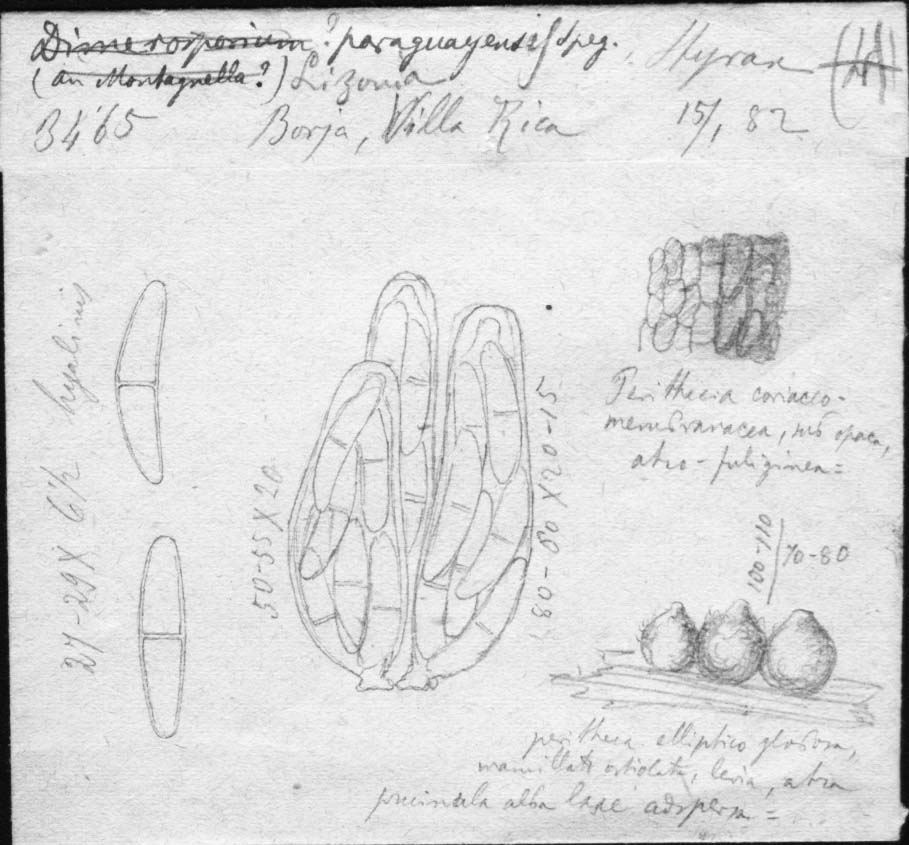 Dimerosporium? paraguayensis Speg. Styrax
(an Montagnella?) Lizonia
3465 Borja, Villa Rica 15/1, 82
hyalinis
27-29 X 6½
50-55 X 20
80-90 X 20-15
Perithecia coriaceo-
membranacea, sub opaca,
atro-fuliginea=
100-110
70-80
perithecia elliptico globosa,
mamillato ostiolata, levia, atra
alba laxe adspersa =